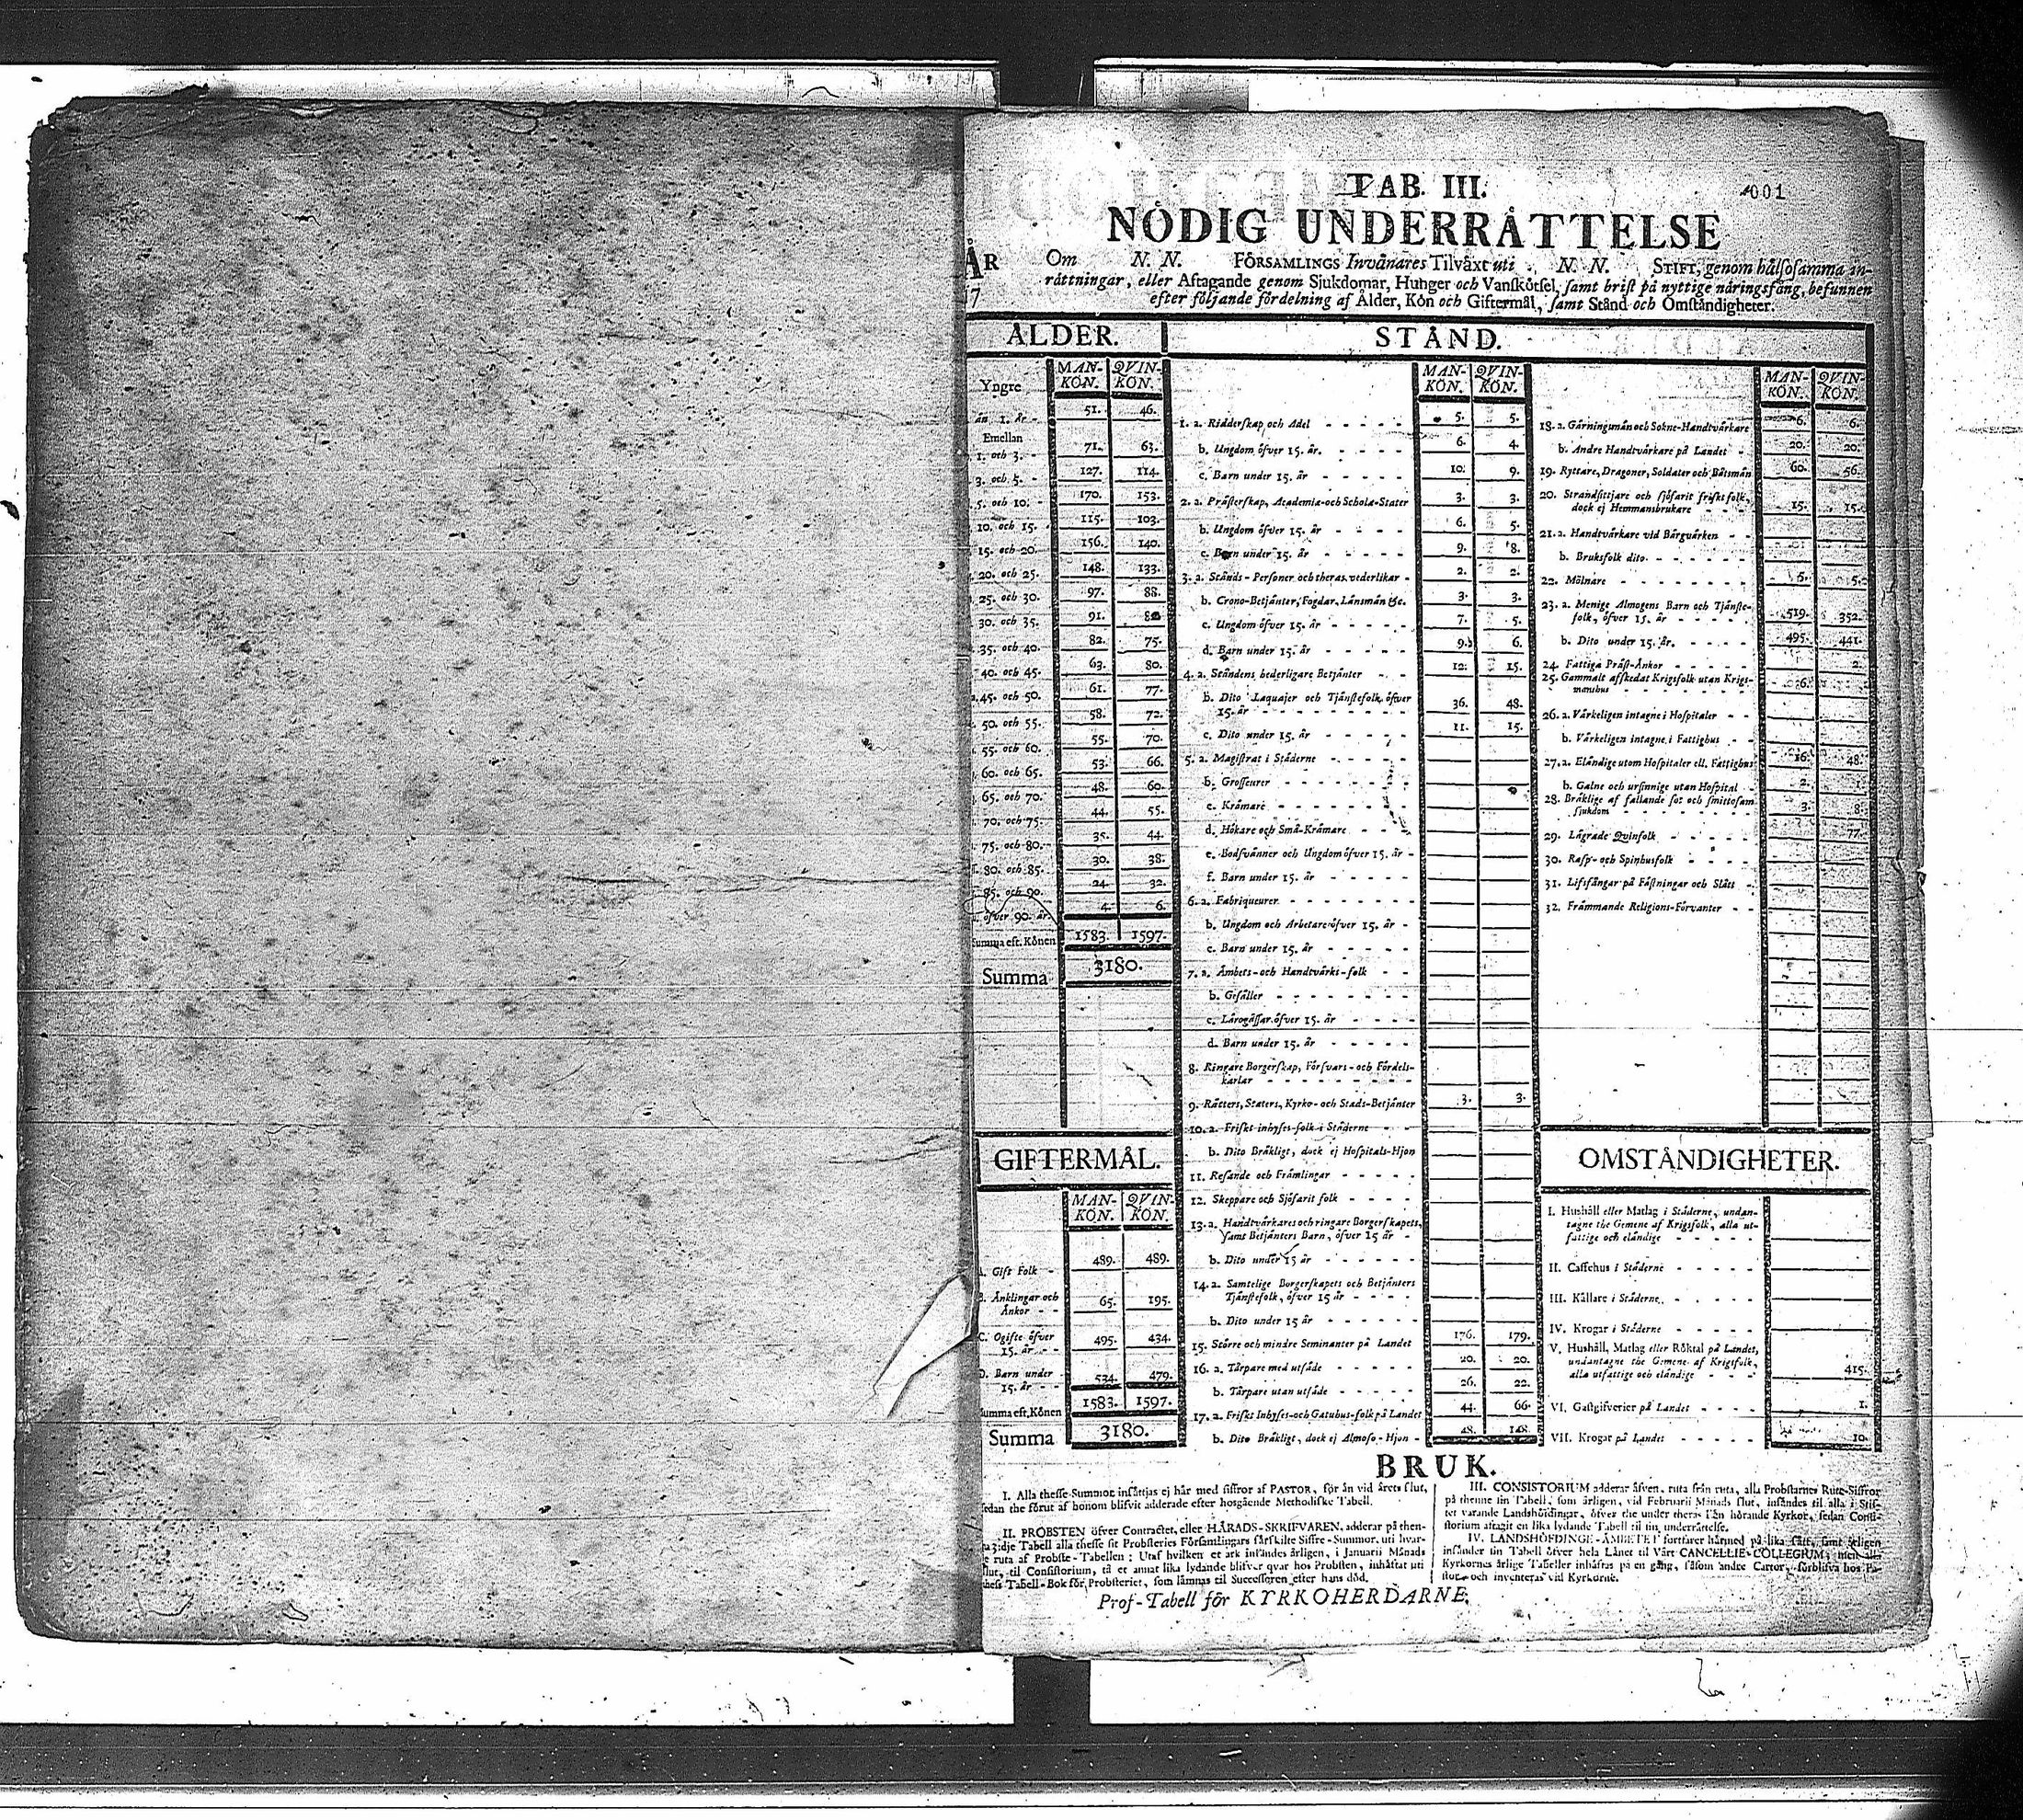 TAB. III.
001
NÖDIG UNDERRÅTTELSE
ÅR Om N. N. FÖRSAMLINGS Invånares Tilväxt uti N. N. STIFT, genom hålsosamma in-
17 råttningar, eller Aftagande genom Sjukdomar, Hunger och Vanskötsel, samt brist på nyttige näringsfång, befunnen
efter följande fördelning af Ålder, Kön och Giftermål, samt Stånd och Omståndigheter.
ÅLDER.
MAN-KÖN. QVIN-KÖN.
Yngre
än 1. år - 51. 46.
Emellan
1. och 3. - 71. 63.
3. och 5. - 127. 114.
5. och 10. - 170. 153.
10. och 15. 115. 103.
15. och 20. 156. 140.
20. och 25. 148. 133.
25. och 30. 97. 88.
30. och 35. 91.
35. och 40. 82. 75.
40. och 45. 63. 80.
45. och 50. 61. 77.
50. och 55. 58. 72.
55. och 60. 55. 70.
60. och 65. 53. 66.
65. och 70. 48. 60.
70. och 75. 44. 55.
75. och 80. 35. 44.
80. och 85. 30. 38.
85. och 90. 24. 32.
öfver 90. år 4. 6.
Summa eft. Könen 1583. 1597.
Summa 3180.
GIFTERMÅL.
MAN-KÖN. QVIN-KÖN.
A. Gift Folk - 489. 489.
B. Änklingar och
Änkor - - 65. 195.
C. Ogifte öfver
15. år - - 495. 434.
D. Barn under
15. år - - 534. 479.
Summa eft. Könen 1583. 1597.
Summa 3180.
STÅND.
MAN-KÖN. QVIN-KÖN.
1. a. Ridderskap och Adel 5. 5.
b. Ungdom öfver 15. år. 6. 4.
c. Barn under 15. år 10. 9.
2. a. Prästerskap, Academiæ-och Scholæ-Stater 3. 3.
b. Ungdom öfver 15. år 6. 5.
c. Barn under 15. år 9. 8.
3. a. Stånds-Personer och theras vederlikar 2. 2.
b. Crono-Betjänter, Fogdar, Länsmän &c. 3. 3.
c. Ungdom öfver 15. år 7. 5.
d. Barn under 15. år 9. 6.
4. a. Ståndens hederligare Betjänter 12. 15.
b. Dito Laquajer och Tjänstefolk, öfver
15. år 36. 48.
c. Dito under 15. år 11. 15.
5. a. Magistrat i Städerne
b. Grosseurer
c. Krämare
d. Hökare och Små-Krämare
e. Bodsvänner och Ungdom öfver 15. år
f. Barn under 15. år
6. a. Fabriqueurer
b. Ungdom och Arbetare öfver 15. år
c. Barn under 15. år
7. a. Ämbets-och Handtvärks-folk
b. Gesäller
c. Lärogåssar öfver 15. år
d. Barn under 15. år
8. Ringare Borgerskap, Försvars-och Fördels-
karlar
9. Rätters, Staters, Kyrko-och Stads-Betjänter 3. 3.
10. a. Friskt inhyses-folk i Städerne
b. Dito Bräkligt, dock ej Hospitals-Hjon
11. Resande och Främlingar
12. Skeppare och Sjöfarit folk
13. a. Handtvärkares och ringare Borgerskapets,
samt Betjänters Barn, öfver 15 år
b. Dito under 15 år
14. a. Samtelige Borgerskapets och Betjänters
Tjänstefolk, öfver 15 år
b. Dito under 15 år
15. Större och mindre Seminanter på Landet 176. 179.
16. a. Tårpare med utsäde 20. 20.
b. Tårpare utan utsäde 26. 22.
17. a. Friskt Inhyses-och Gatuhus-folk på Landet 44. 66.
b. Dito Bräkligt, dock ej Almoso-Hjon 48. 148.
MAN-KÖN. QVIN-KÖN.
18. a. Gärningsmän och Sokne-Handtvärkare 6. 6.
b. Andre Handtvärkare på Landet 20. 20.
19. Ryttare, Dragoner, Soldater och Båtsmän 60. 56.
20. Strandsittjare och sjöfarit friskt folk,
dock ej Hemmansbrukare 15. 15.
21. a. Handtvärkare vid Bärgvärken
b. Bruksfolk dito
22. Mölnare 5. 5.
23. a. Menige Almogens Barn och Tjänste-
folk, öfver 15. år 519. 352.
b. Dito under 15. år. 495. 441.
24. Fattiga Präst-Änkor 2.
25. Gammalt afskedat Krigsfolk utan Krigs-
manshus 6.
26. a. Värkeligen intagne i Hospitaler
b. Värkeligen intagne i Fattighus
27. a. Eländige utom Hospitaler ell. Fattighus 16. 48.
b. Galne och ursinnige utan Hospital 2.
28. Bräklige af fallande sot och smittosam
sjukdom 3. 8.
29. Lägrade Qvinfolk 77.
30. Rasp-och Spinhusfolk
31. Lifsfångar på Fästningar och Slått
32. Främmande Religions-Förvanter
OMSTÅNDIGHETER.
I. Hushåll eller Matlag i Städerne, undan-
tagne the Gemene af Krigsfolk, alla ut-
fattige och eländige
II. Caffehus i Städerne
III. Källare i Städerne
IV. Krogar i Städerne
V. Hushåll, Matlag eller Röktal på Landet,
undantagne the Gemene af Krigsfolk,
alla utfattige och eländige 415.
VI. Gästgifverier på Landet 1.
VII. Krogar på Landet 10.
BRUK.
I. Alla thesse Summor insättjas ej här med siffror af PASTOR, för än vid årets slut,
sedan the förut af honom blifvit adderade efter hosgående Methodiske Tabell.
II. PROBSTEN öfver Contractet, eller HÄRADS-SKRIFVAREN, adderar på then-
na 3:dje Tabell alla thesse sit Probsteries Församlingars särskilte Siffre-Summor, uti hvar-
e ruta af Probste-Tabellen: Utaf hvilken et ark insändes årligen, i Januarii Månads
slut, til Consistorium, tå et annat lika lydande blifver qvar hos Probsten, inhäftat uti
thess Tabell-Bok för Probsteriet, som lämnas til Successoren efter hans död.
III. CONSISTORIUM adderar äfven, ruta från ruta, alla Probstarnes Rute-Siffror
på thenne sin Tabell, som årligen, vid Februarii Månads slut, insändes til alla i Stif-
tet varande Landshöfdingar, öfver the under theras Län hörande Kyrkor, sedan Consi-
storium aftagit en lika lydande Tabell til sin underrättelse.
IV. LANDSHÖFDINGE-ÄMBETET fortfarer härmed på lika sätt, samt årligen
insänder sin Tabell öfver hela Länet til Vårt CANCELLIE-COLLEGIUM; men alla
Kyrkornes årlige Tabeller inhäftas på en gång, såsom andre Cartor, förblifva hos Pa-
stor och inventeras vid Kyrkorne.
Prof-Tabell för KYRKOHERDARNE.